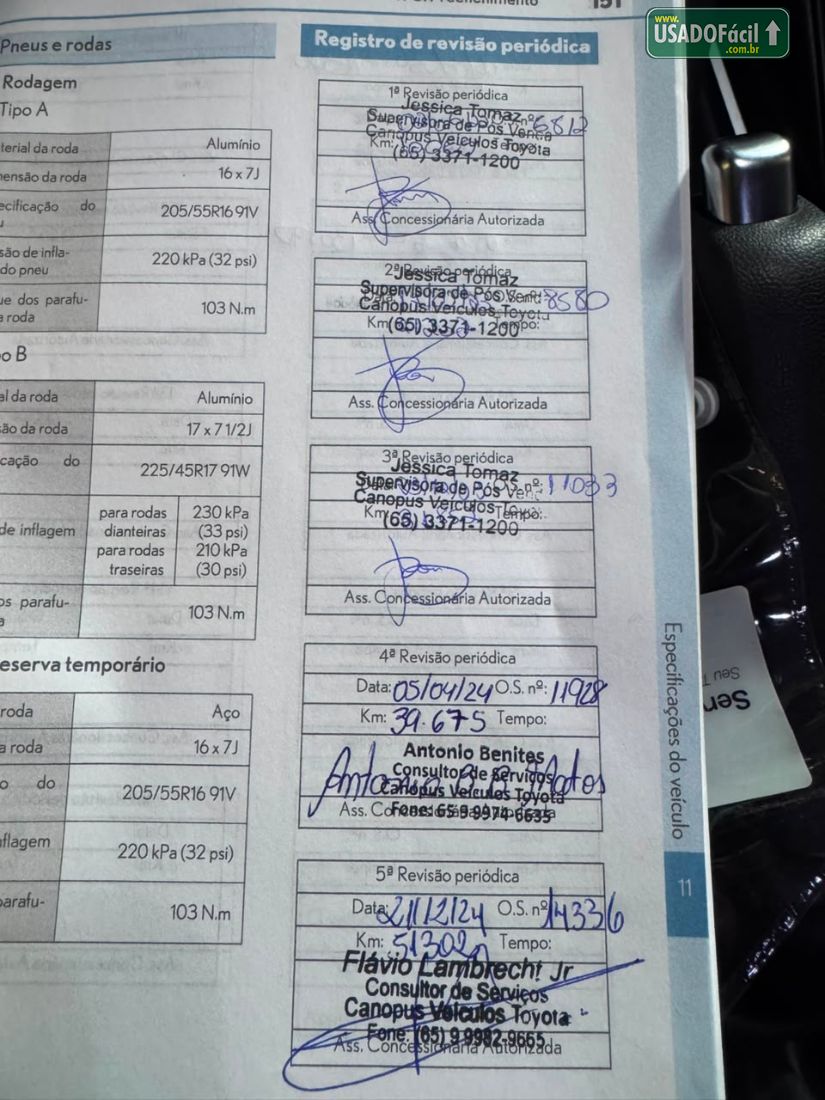 151
www.
USADOFácil
.com.br
Pneus e rodas
Rodagem
Tipo A
terial da roda Alumínio
ensão da roda 16 x 7J
ecificação do 205/55R16 91V
são de infla-
do pneu 220 kPa (32 psi)
ue dos parafu-
a roda 103 N.m
o B
al da roda Alumínio
ão da roda 17 x 7 1/2J
cação do 225/45R17 91W
de inflagem
para rodas dianteiras 230 kPa (33 psi)
para rodas traseiras 210 kPa (30 psi)
os parafu- 103 N.m
eserva temporário
roda Aço
a roda 16 x 7J
o do 205/55R16 91V
nflagem 220 kPa (32 psi)
parafu- 103 N.m
Registro de revisão periódica
1ª Revisão periódica
Jessica Tomaz
Supervisora de Pós Venda nº: 6812
Canopus Veículos Toyota
Km:
(65) 3371-1200
Ass. Concessionária Autorizada
2ª Revisão periódica
Jessica Tomaz
Supervisora de Pós Venda nº: 8580
Canopus Veículos Toyota
Km: (65) 3371-1200 Tempo:
Ass. Concessionária Autorizada
3ª Revisão periódica
Jessica Tomaz
Supervisora de Pós Venda O.S. nº: 11033
Canopus Veículos Toyota
Km: (65) 3371-1200 Tempo:
Ass. Concessionária Autorizada
4ª Revisão periódica
Data: 05/04/24 O.S. nº: 11928
Km: 39.675 Tempo:
Antonio Benites
Consultor de Serviços
Canopus Veículos Toyota
Fone: 65 9 9974-6635
Ass. Concessionária Autorizada
5ª Revisão periódica
Data: 21/12/24 O.S. nº: 14336
Km: 51302 Tempo:
Flávio Lambrecht Jr
Consultor de Serviços
Canopus Veículos Toyota
Fone: (65) 9 9982-9665
Ass. Concessionária Autorizada
Especificações do veículo
11
Seu
Ser